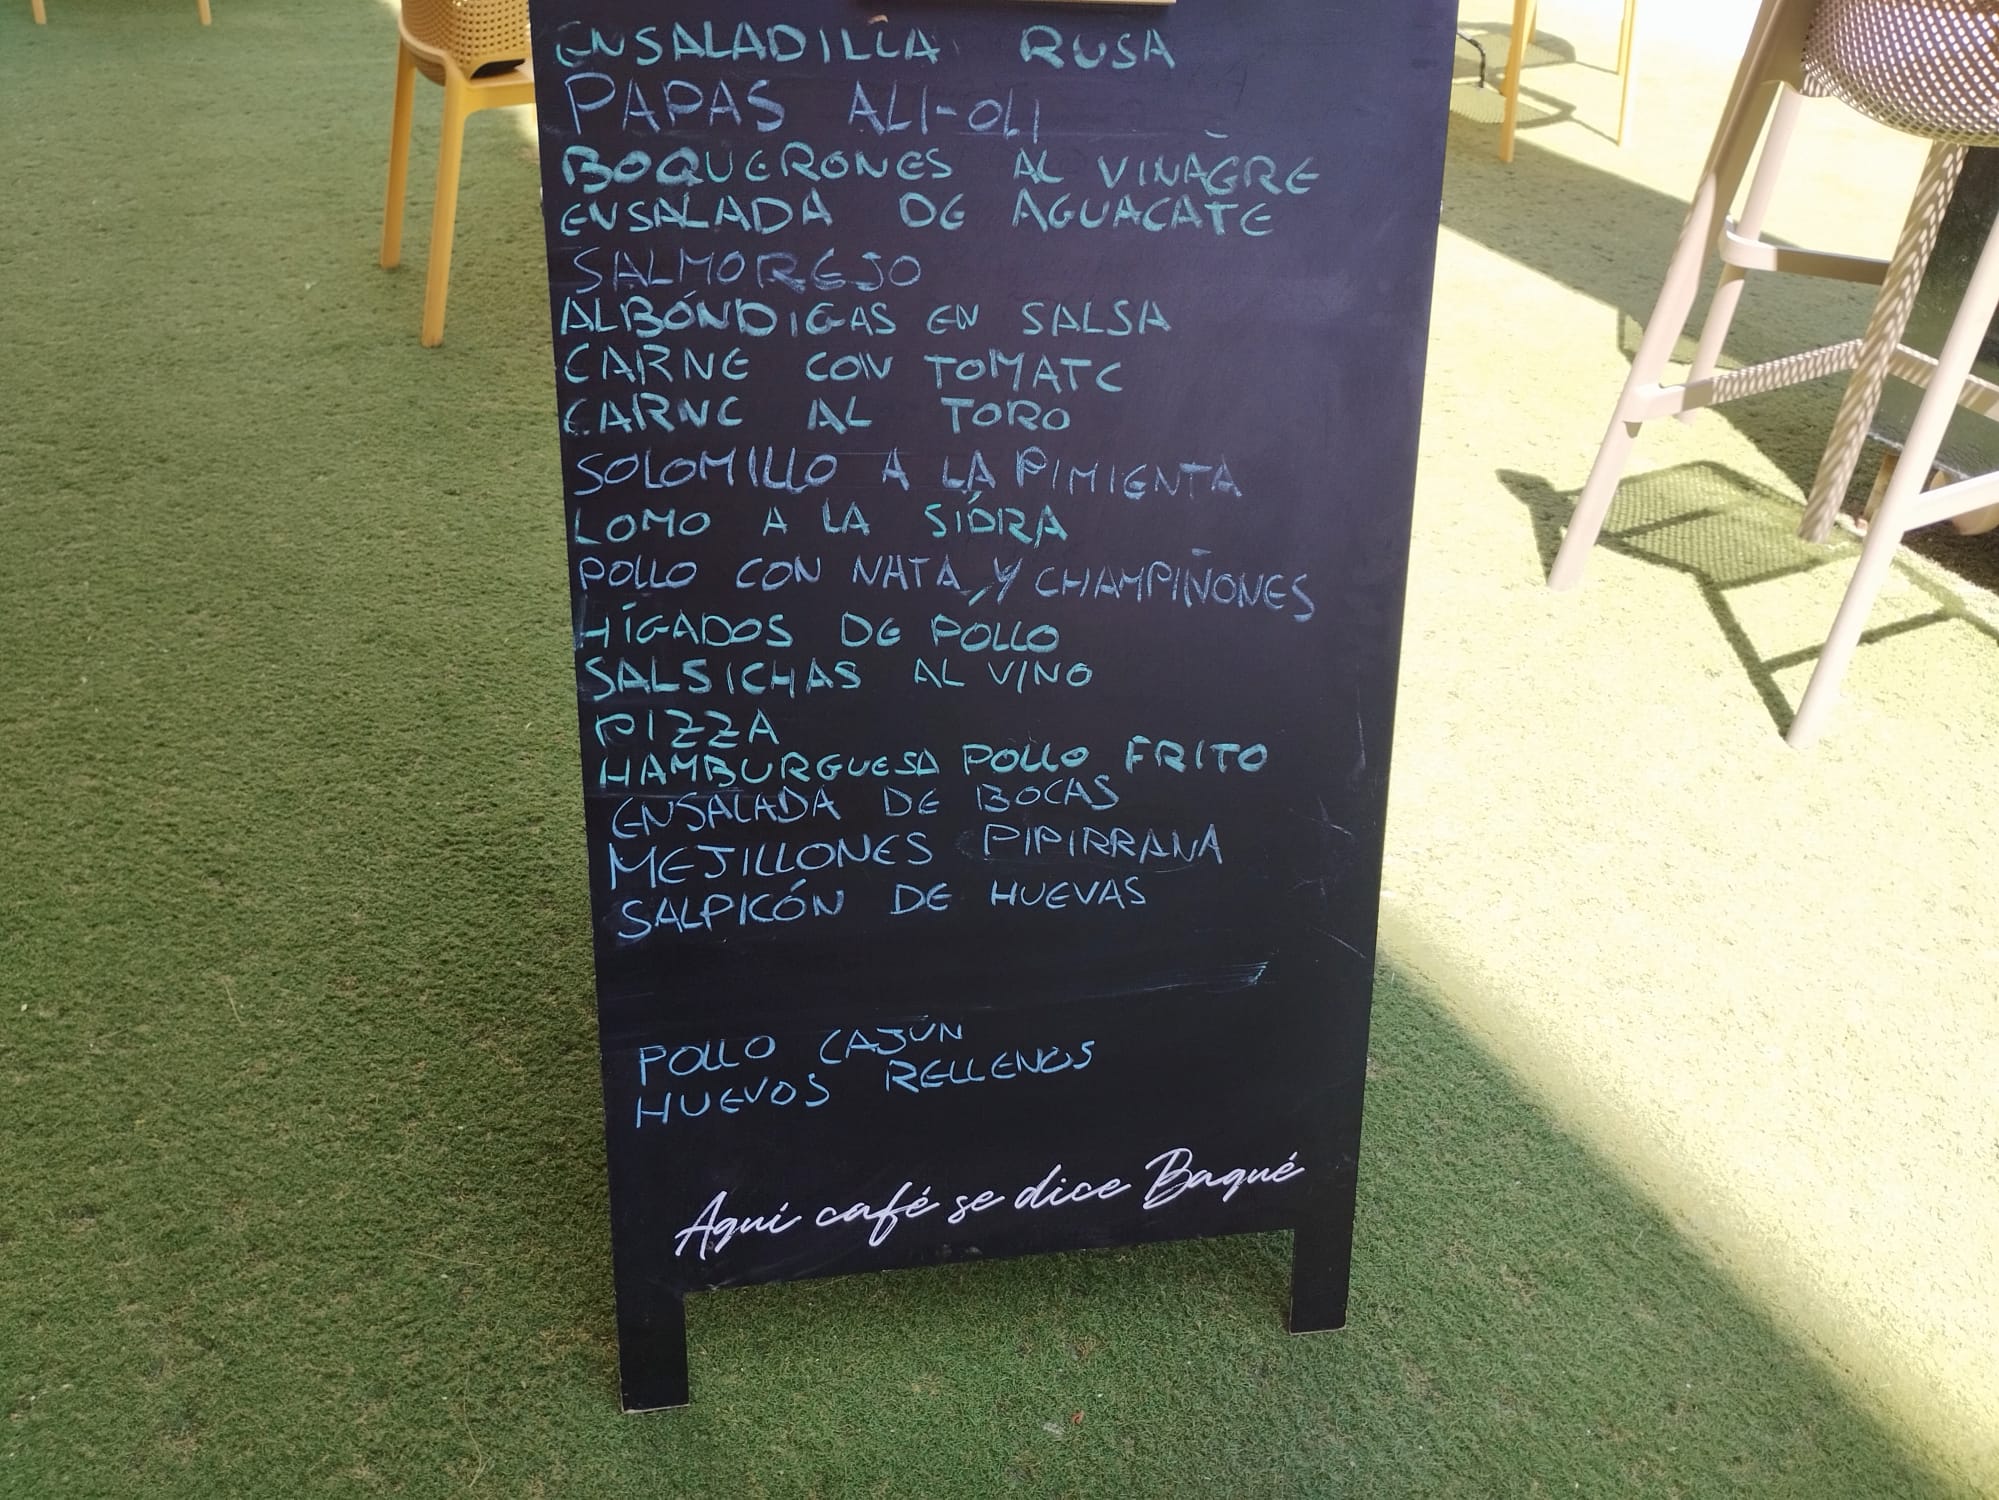 ENSALADILLA RUSA
PAPAS ALI-OLI
BOQUERONES AL VINAGRE
ENSALADA DE AGUACATE
SALMOREJO
ALBÓNDIGAS EN SALSA
CARNE CON TOMATE
CARNE AL TORO
SOLOMILLO A LA PIMIENTA
LOMO A LA SIDRA
POLLO CON NATA Y CHAMPIÑONES
HÍGADOS DE POLLO
SALSICHAS AL VINO
PIZZA
HAMBURGUESA POLLO FRITO
ENSALADA DE BOCAS
MEJILLONES PIPIRRANA
SALPICÓN DE HUEVAS
POLLO CAJÚN
HUEVOS RELLENOS
Aquí café se dice Baqué